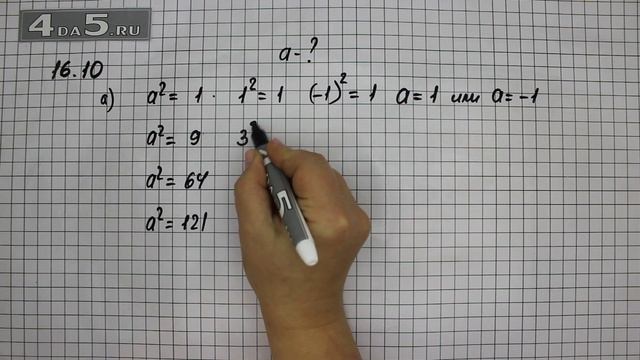 4DA5.RU
a-?
16.10
а) a² = 1 . 1² = 1 (-1)² = 1 a = 1 или a = -1
a² = 9 3
a² = 64
a² = 121
5